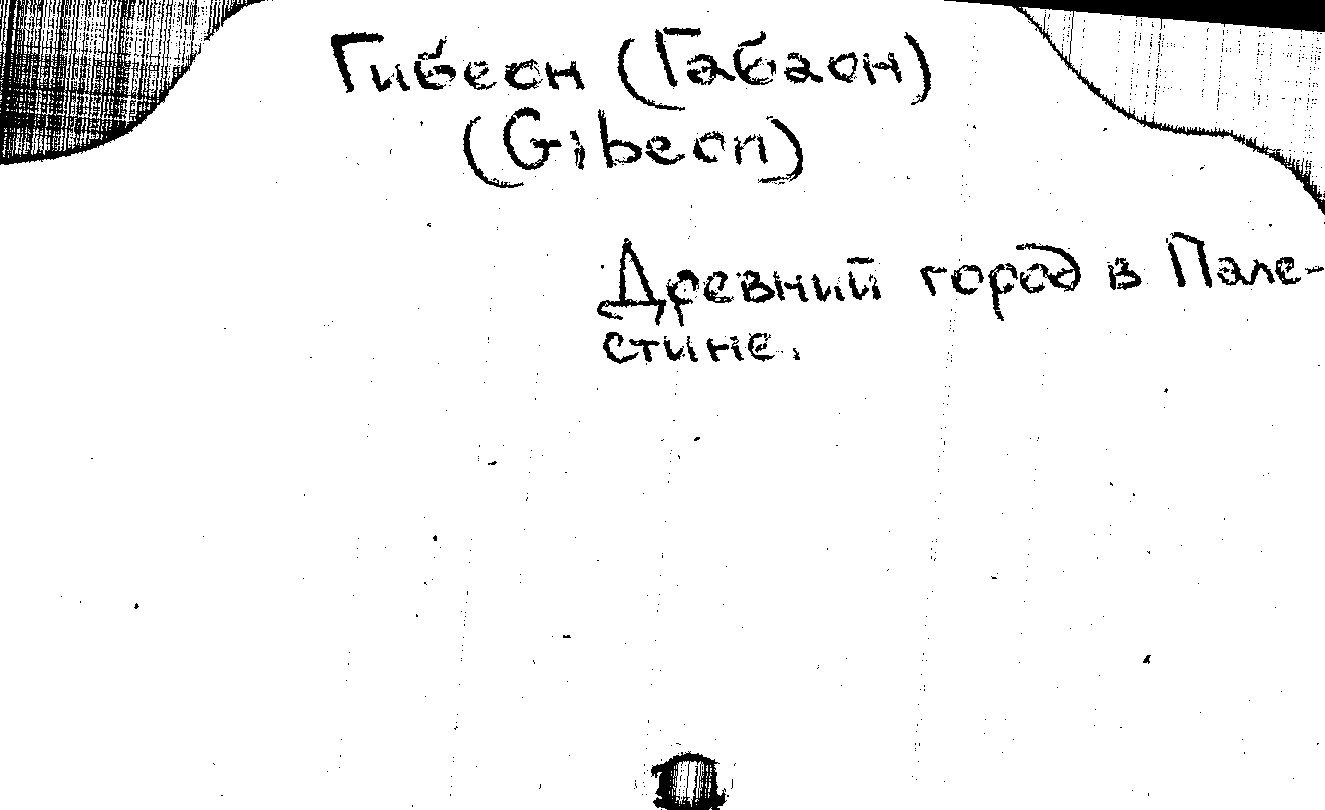 Гибеон (Габаон)
(Gibeon)
Древний город в Пале-
стине.